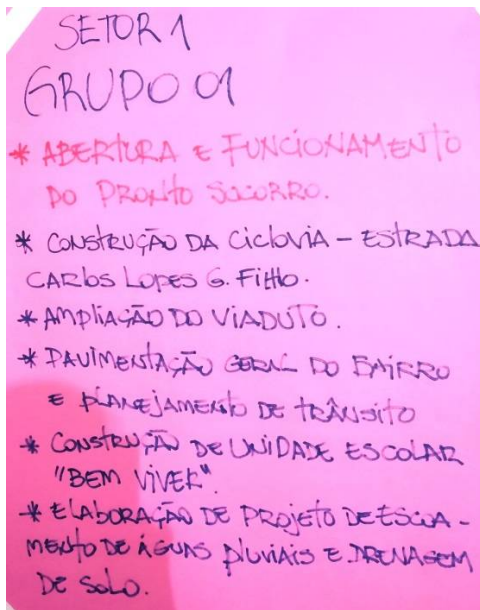 SETOR 1
GRUPO 01
* ABERTURA E FUNCIONAMENTO
DO PRONTO SOCORRO.
* CONSTRUÇÃO DA CICLOVIA - ESTRADA
CARLOS LOPES G. FILHO.
* AMPLIAÇÃO DO VIADUTO.
* PAVIMENTAÇÃO GERAL DO BAIRRO
E PLANEJAMENTO DE TRÂNSITO
* CONSTRUÇÃO DE UNIDADE ESCOLAR
"BEM VIVER".
* ELABORAÇÃO DE PROJETO DE ESCOA-
MENTO DE ÁGUAS PLUVIAIS E DRENAGEM
DE SOLO.